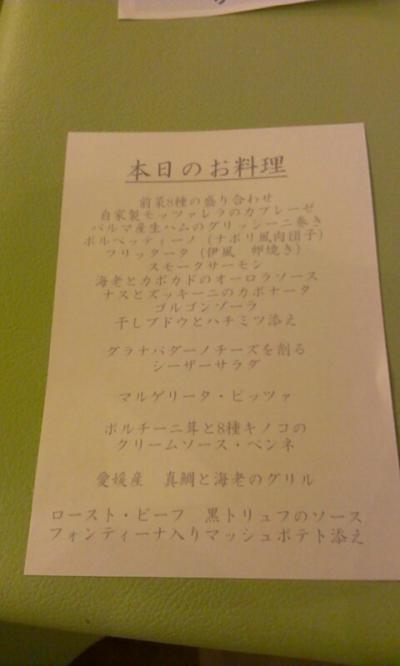 本日のお料理
前菜8種の盛り合わせ
自家製モッツァレラのカプレーゼ
パルマ産生ハムのグリッシーニ巻き
ポルペッティーノ（ナポリ風肉団子）
フリッタータ（伊風　卵焼き）
スモークサーモン
海老とカボカドのオーロラソース
ナスとズッキーニのカポナータ
ゴルゴンゾーラ
干しブドウとハチミツ添え
グラナパダーノチーズを削る
シーザーサラダ
マルゲリータ・ピッツァ
ポルチーニ茸と8種キノコの
クリームソース・ペンネ
愛媛産　真鯛と海老のグリル
ロースト・ビーフ　黒トリュフのソース
フォンティーナ入りマッシュポテト添え